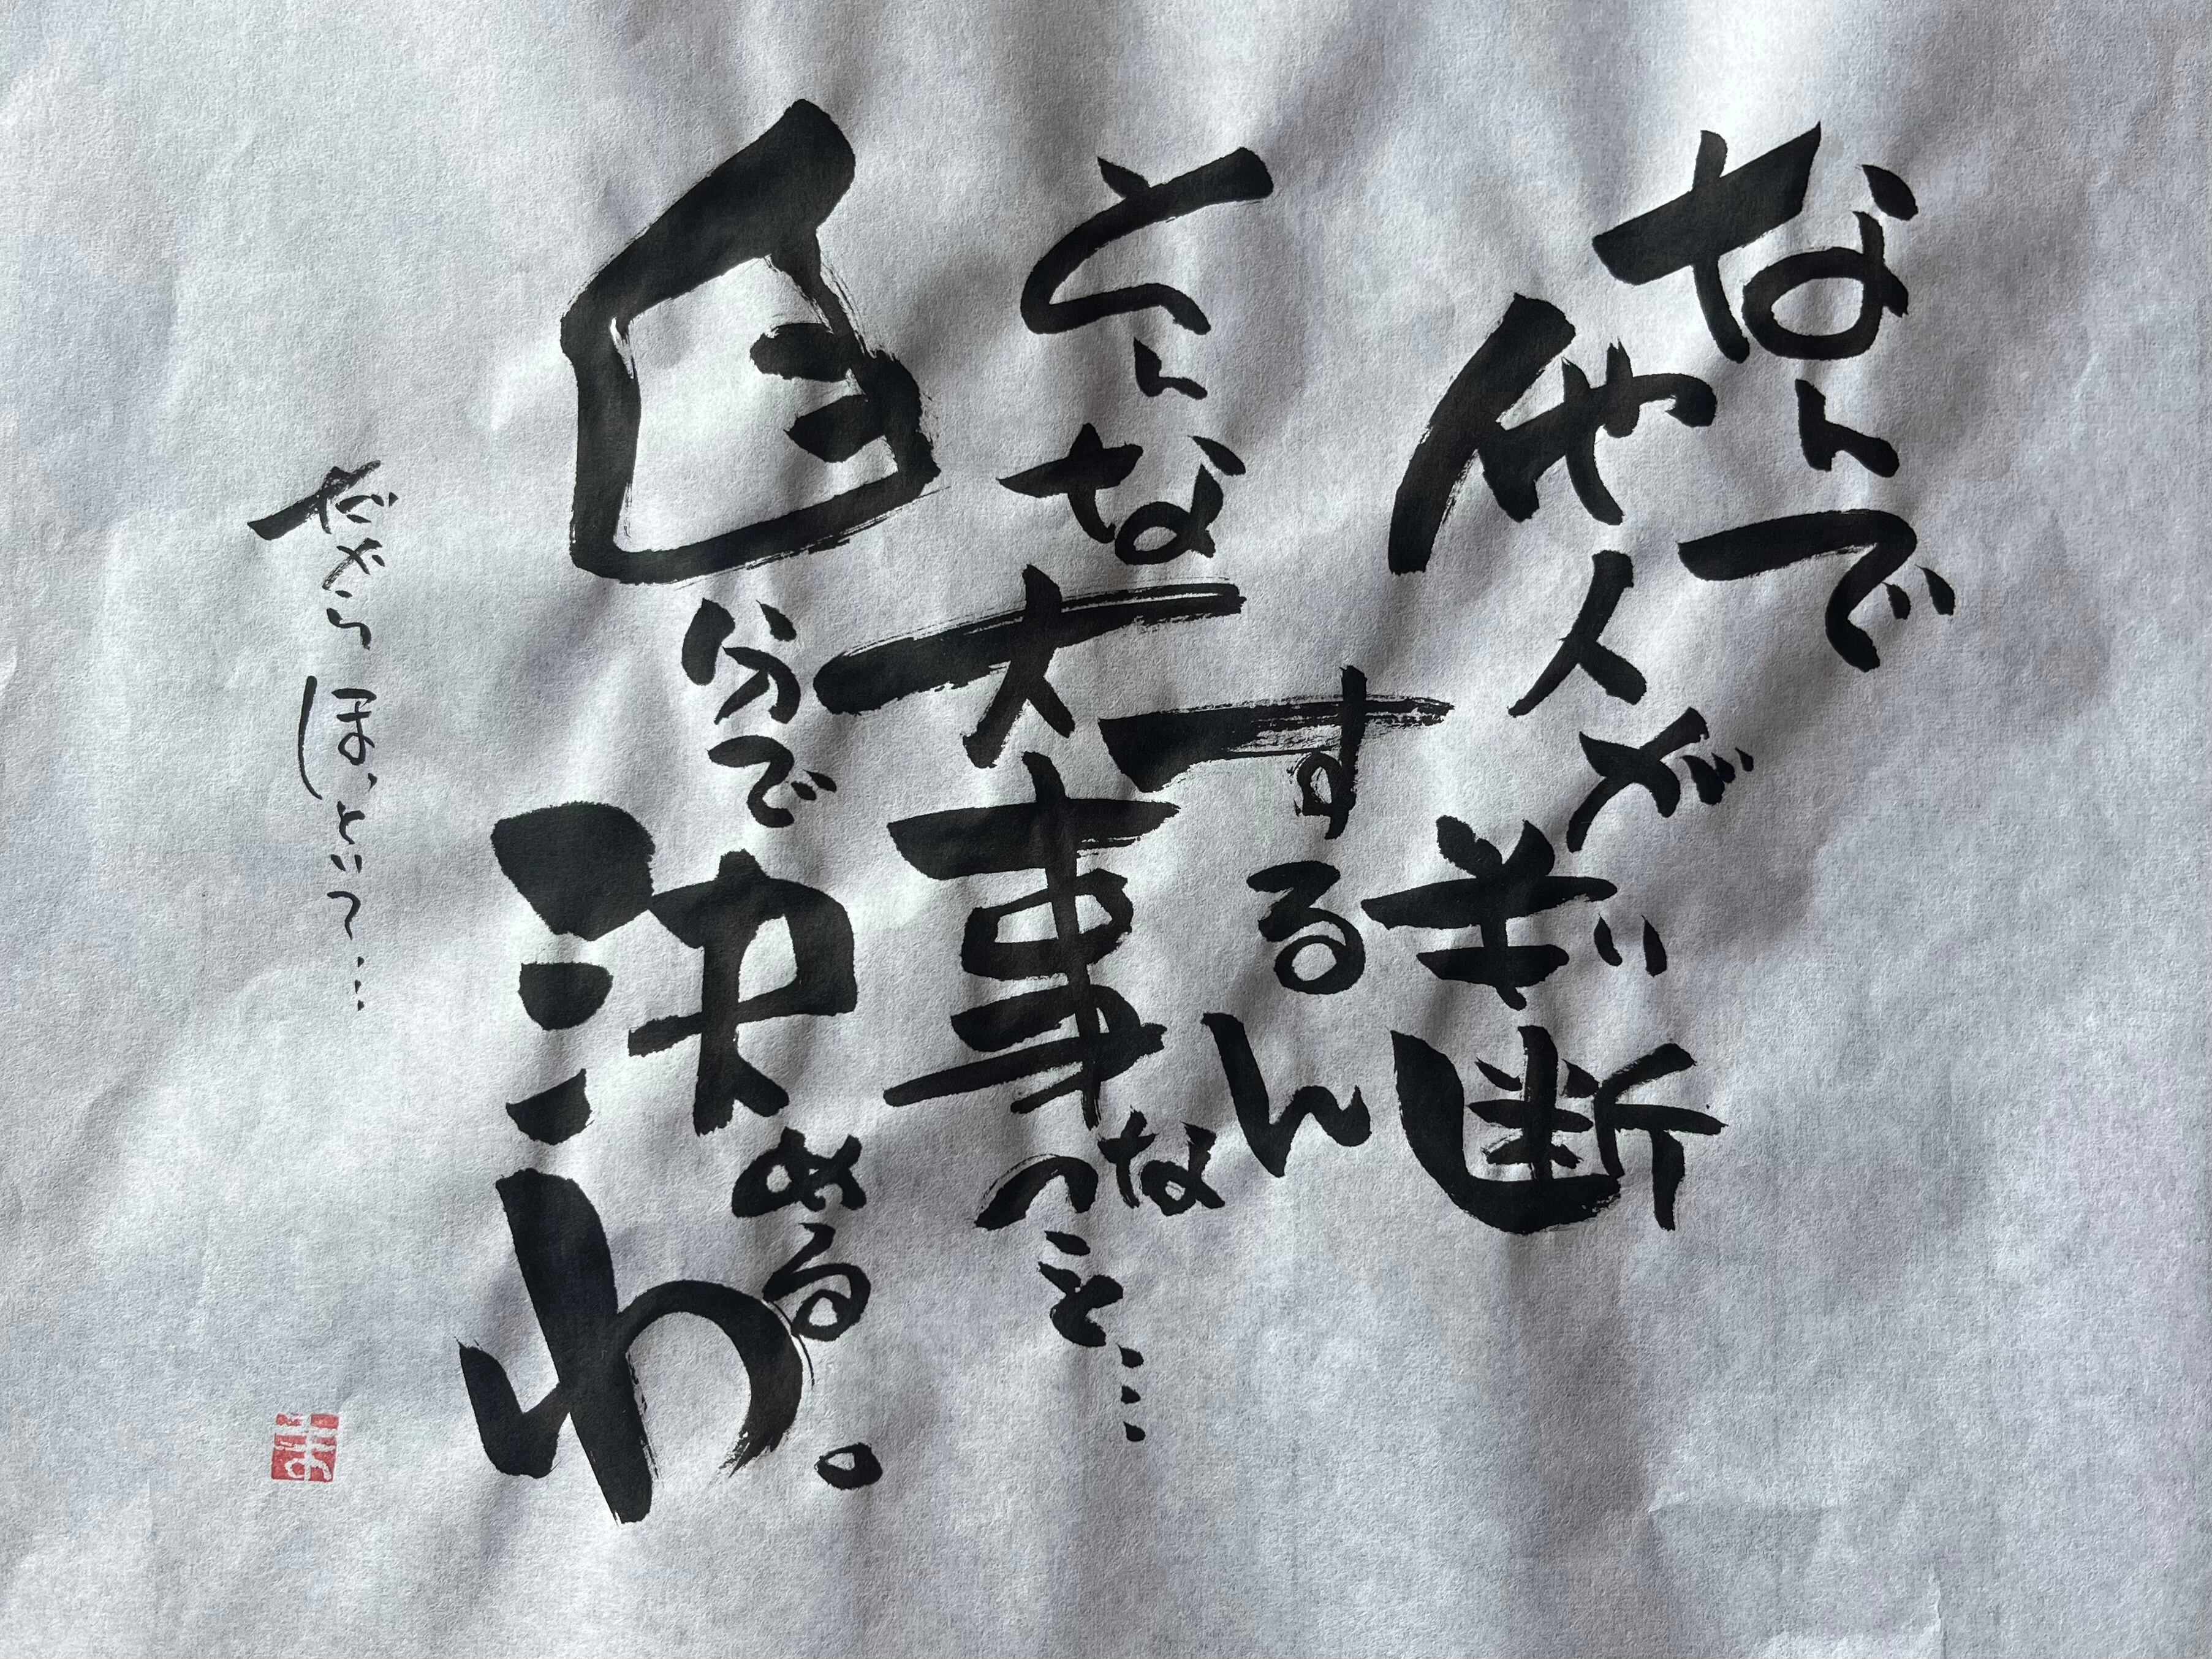 なんで
他人が判断
するん
そんな大事なこと…
自分で
決めるわ。
だからほっといて…